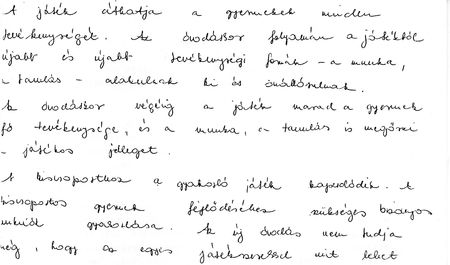 A játék áthatja a gyermekek minden
tevékenységét. Az óvodáskor folyamán a játékból
újabb és újabb tevékenységi formák - a munka,
a tanulás - alakulnak ki és önállósulnak.
Az óvodáskor végéig a játék marad a gyermek
fő tevékenysége, és a munka, a tanulás is megőrzi
a játékos jelleget.
A kiscsoporthoz a gyakorló játék kapcsolódik. A
kiscsoportos gyermek fejlődéséhez szükséges bizonyos
gyakorlása. Az új óvodás nem tudja
még, hogy az egyes játékszerekkel mit lehet